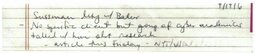 9/19/16
Sussmann mtg w/ Baker
- No specific client but group of cyber academics
talked w/ him abt research
- article this Friday - NYT/WaPo/WSJ